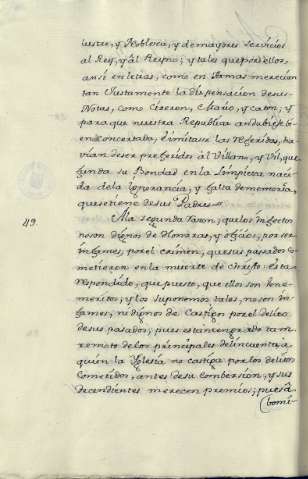 lustre, y Nobleza, y demayres servicios
al Rey, y al Reyno; y tales que por ellos,
ansi en letras, como en Armas merecian
tan Justamente la dispensacion desus
Notas, como Ciceron, Mario, y Caton; y
para que nuestra Republica
en concertada, è imitase las referidas, ha
vian de ser preferidos al Villano, y Vil, que
funda su Bondad en la limpieza naci
da dela ignorancia, y falta de memoria,
que se tiene de sus Padres.
49. Ala segunda razon, que los infectos
no son dignos de Honrras, y oficios, por ser
infames, por el crimen, que sus pasados co
metieron en la muerte de Christo: està
respondido, que puesto, que ellos son bene
meritos, y los suponemos tales, no son in
fames, ni dignos de Castigo por el delito
de sus pasados, pues estan en grado tan
remoto delos principales delincuentes, a
quien la Yglesia no castiga por los delitos
cometidos, antes desu Combersion, y sus
decendientes merecen premios; pues à
bomi-